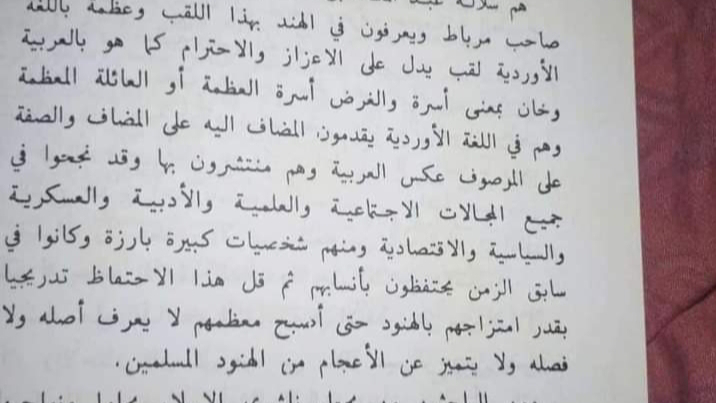 هم سلالة عبد
صاحب مرباط ويعرفون في الهند بهذا اللقب وعظمة باللغة
الأوردية لقب يدل على الاعزاز والاحترام كما هو بالعربية
وخان بمعنى أسرة والغرض أسرة العظمة أو العائلة المعظمة
وهم في اللغة الأوردية يقدمون المضاف اليه على المضاف والصفة
على المرصوف عكس العربية وهم منتشرون بها وقد نجحوا في
جميع المجالات الاجتماعية والعلمية والأدبية والعسكرية
والسياسية والاقتصادية ومنهم شخصيات كبيرة بارزة وكانوا في
سابق الزمن يحتفظون بأنسابهم ثم قل هذا الاحتفاظ تدريجيا
بقدر امتزاجهم بالهنود حتى أسبح معظمهم لا يعرف أصله ولا
فصله ولا يتميز عن الأعجام من الهنود المسلمين.